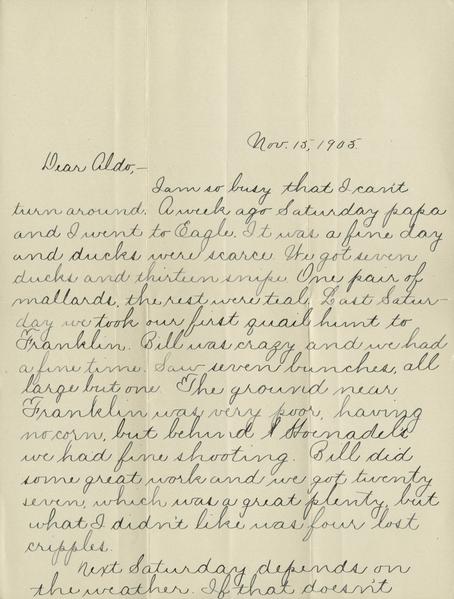 Nov. 15, 1905.
Dear Aldo,—
I am so busy that I can't
turn around. A week ago Saturday papa
and I went to Eagle. It was a fine day
and ducks were scarce. We got seven
ducks and thirteen snipe. One pair of
mallards, the rest were teal. Last Satur-
day we took our first quail hunt to
Franklin. Bill was crazy and we had
a fine time. Saw seven bunches, all
large but one. The ground near
Franklin was very poor, having
no corn, but behind
we had fine shooting. Bill did
some great work and we got twenty
seven, which was a great plenty, but
what I didn't like was four lost
cripples.
Next Saturday depends on
the weather. If that doesn't